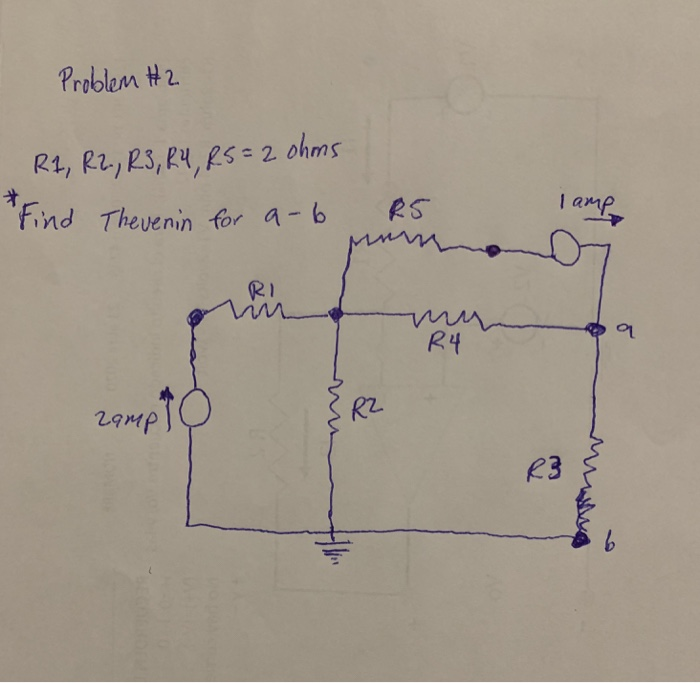 Problem #2
R1, R2, R3, R4, R5 = 2 ohms
*Find Thevenin for a-b
R5
1 amp
R1
R4
a
2amp
R2
R3
b